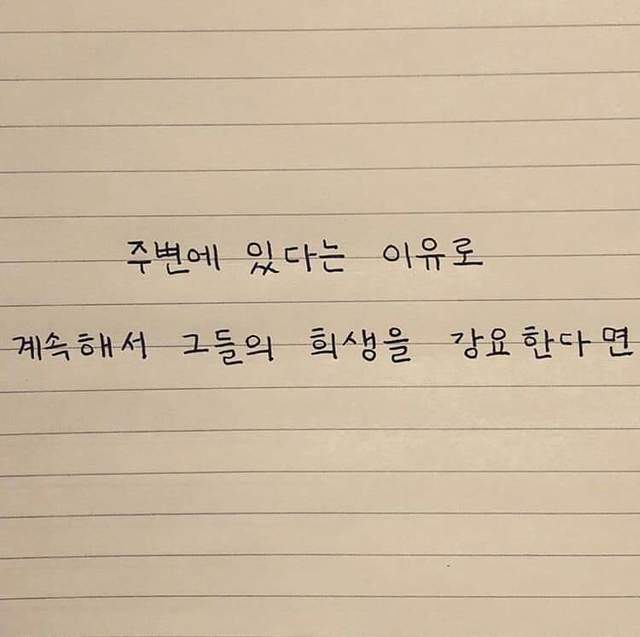 주변에 있다는 이유로
계속해서 그들의 희생을 강요한다면